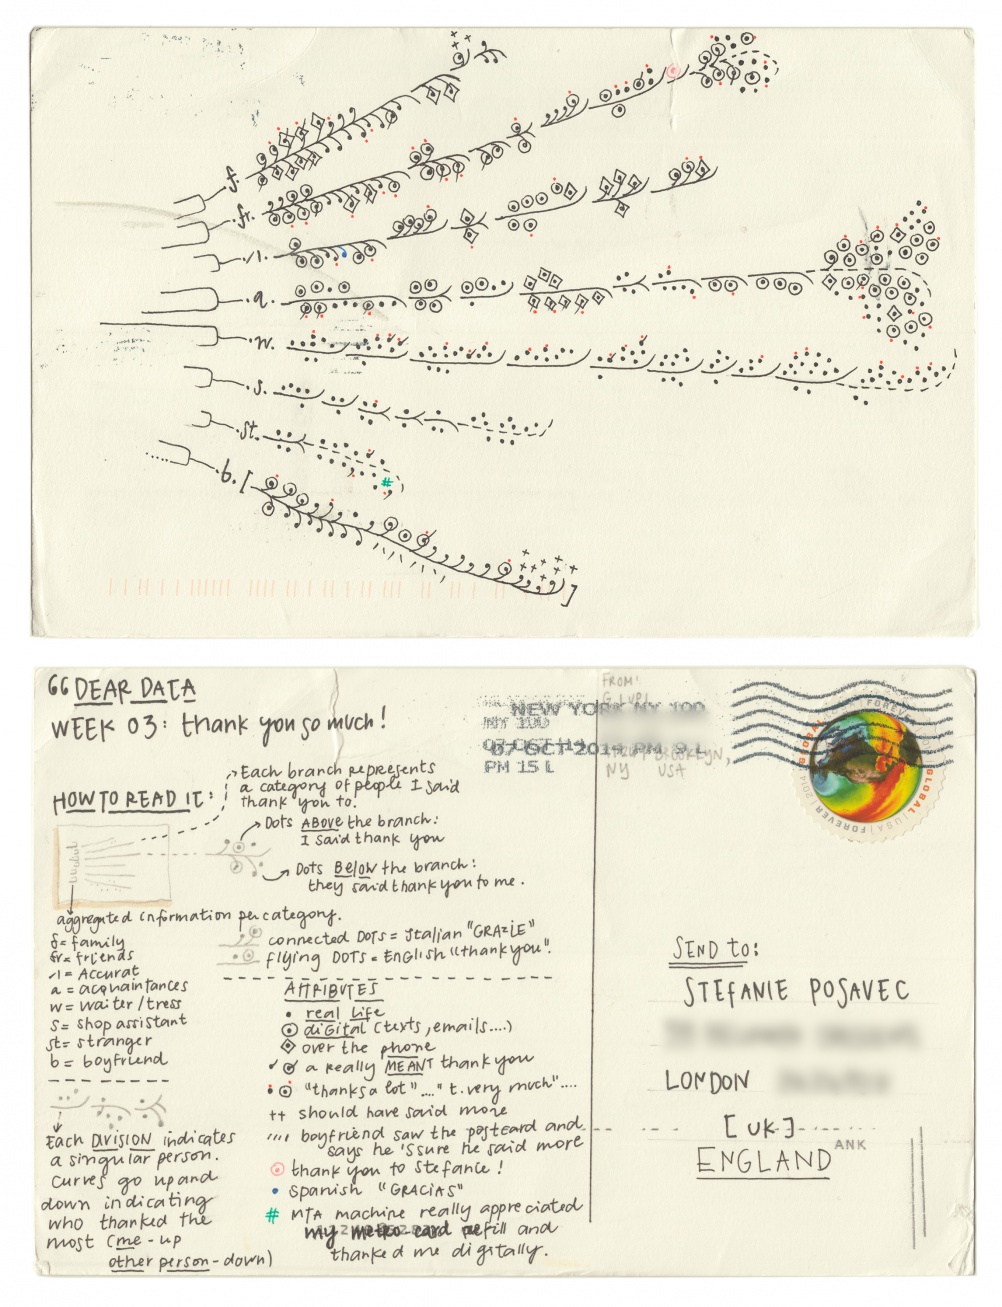 f.
fr.
./1.
a.
w.
s.
st.
#
b. [
]
GG DEAR DATA
WEEK 03: thank you so much!
HOW TO READ IT:
Each branch represents
a category of people I said
thank you to.
Dots ABOVE the branch:
I said thank you
Dots BELOW the branch:
they said thank you to me.
aggregated information per category.
f = family
fr = friends
/1 = Accurat
a = acquaintances
w = waiter/tress
s = shop assistant
st = stranger
b = boyfriend
connected DOTS = Italian "GRAZIE"
flying DOTS = ENGLISH "thank you".
Each DIVISION indicates
a singular person.
Curves go up and
down indicating
who thanked the
most (me - up
other person - down)
ATTRIBUTES
real life
digital (texts, emails....)
over the phone
a really MEANT thank you
"thanks a lot"...." t. very much"....
++ should have said more
'''' boyfriend saw the postcard and
says he 'ssure he said more
thank you to Stefanie!
Spanish "GRACIAS"
# MTA machine really appreciated
my metro card refill and
thanked me digitally.
FROM:
NEW YORK NY 100
NY 100
07 OCT 2014 PM 9 L
PM 15 L
BROOKLYN,
NY USA
GLOBAL
FOREVER
GLOBAL | USA | FOREVER | 2014
SEND to:
STEFANIE POSAVEC
LONDON
[UK]
ENGLAND
ANK